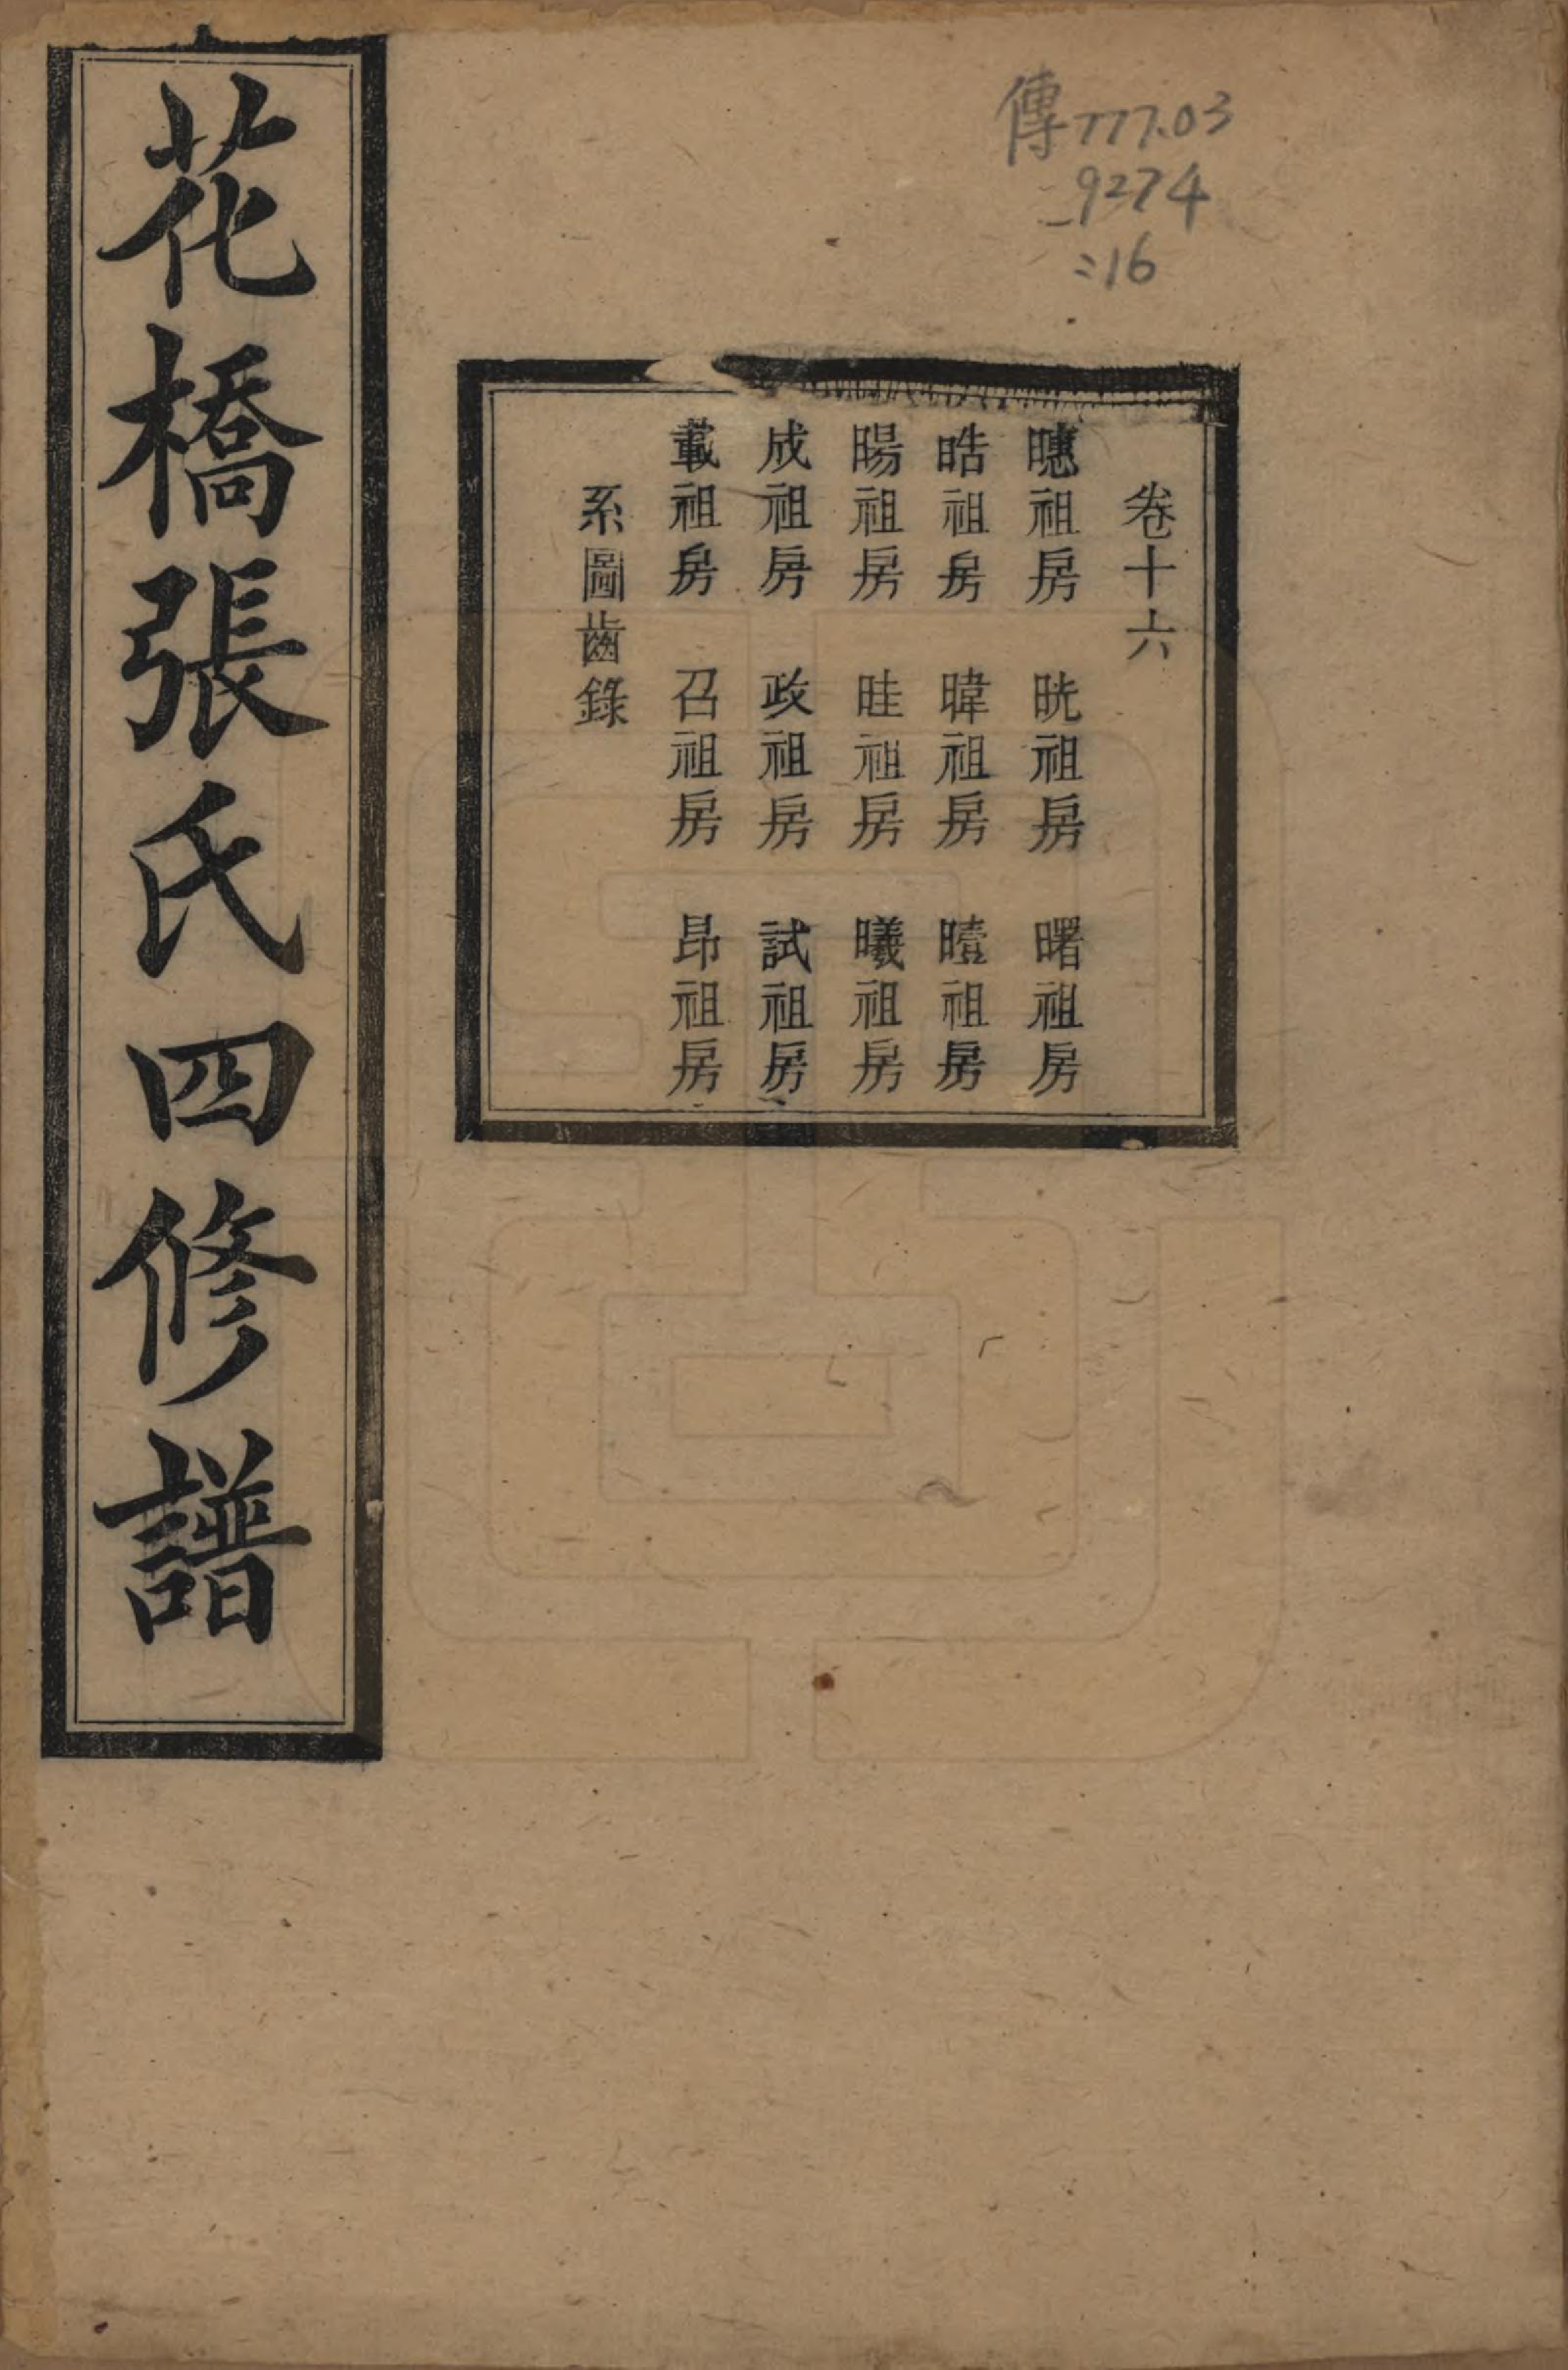 傳777.03
9274
:16
卷十六
暳祖房　晄祖房　曙祖房
晧祖房　暐祖房　曀祖房
暘祖房　晆祖房　曦祖房
成祖房　政祖房　試祖房
載祖房　召祖房　昂祖房
系圖齒錄
花橋張氏四修譜